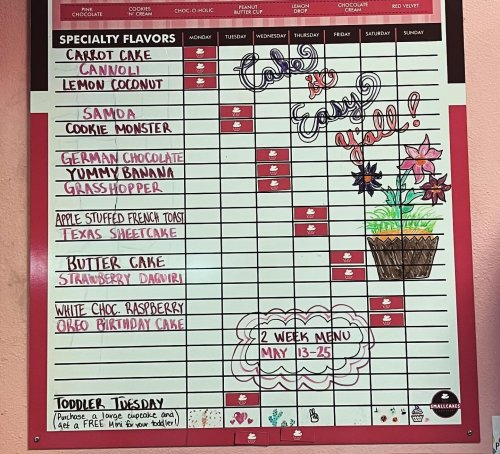 PINK CHOCOLATE COOKIES 'N' CREAM CHOC-O-HOLIC PEANUT BUTTER CUP LEMON DROP CHOCOLATE CREAM RED VELVET
SPECIALTY FLAVORS MONDAY TUESDAY WEDNESDAY THURSDAY FRIDAY SATURDAY SUNDAY
CARROT CAKE
CANNOLI
LEMON COCONUT
Cake
it
Easy
y'all!
SAMOA
COOKIE MONSTER
GERMAN CHOCOLATE
YUMMY BANANA
GRASSHOPPER
APPLE STUFFED FRENCH TOAST
TEXAS SHEETCAKE
BUTTER CAKE
STRAWBERRY DAQUIRI
WHITE CHOC. RASPBERRY
OREO BIRTHDAY CAKE
2 WEEK MENU
MAY 13-25
TODDLER TUESDAY
(Purchase a large cupcake and
get a FREE Mini for your toddler!)
SMALLCAKES